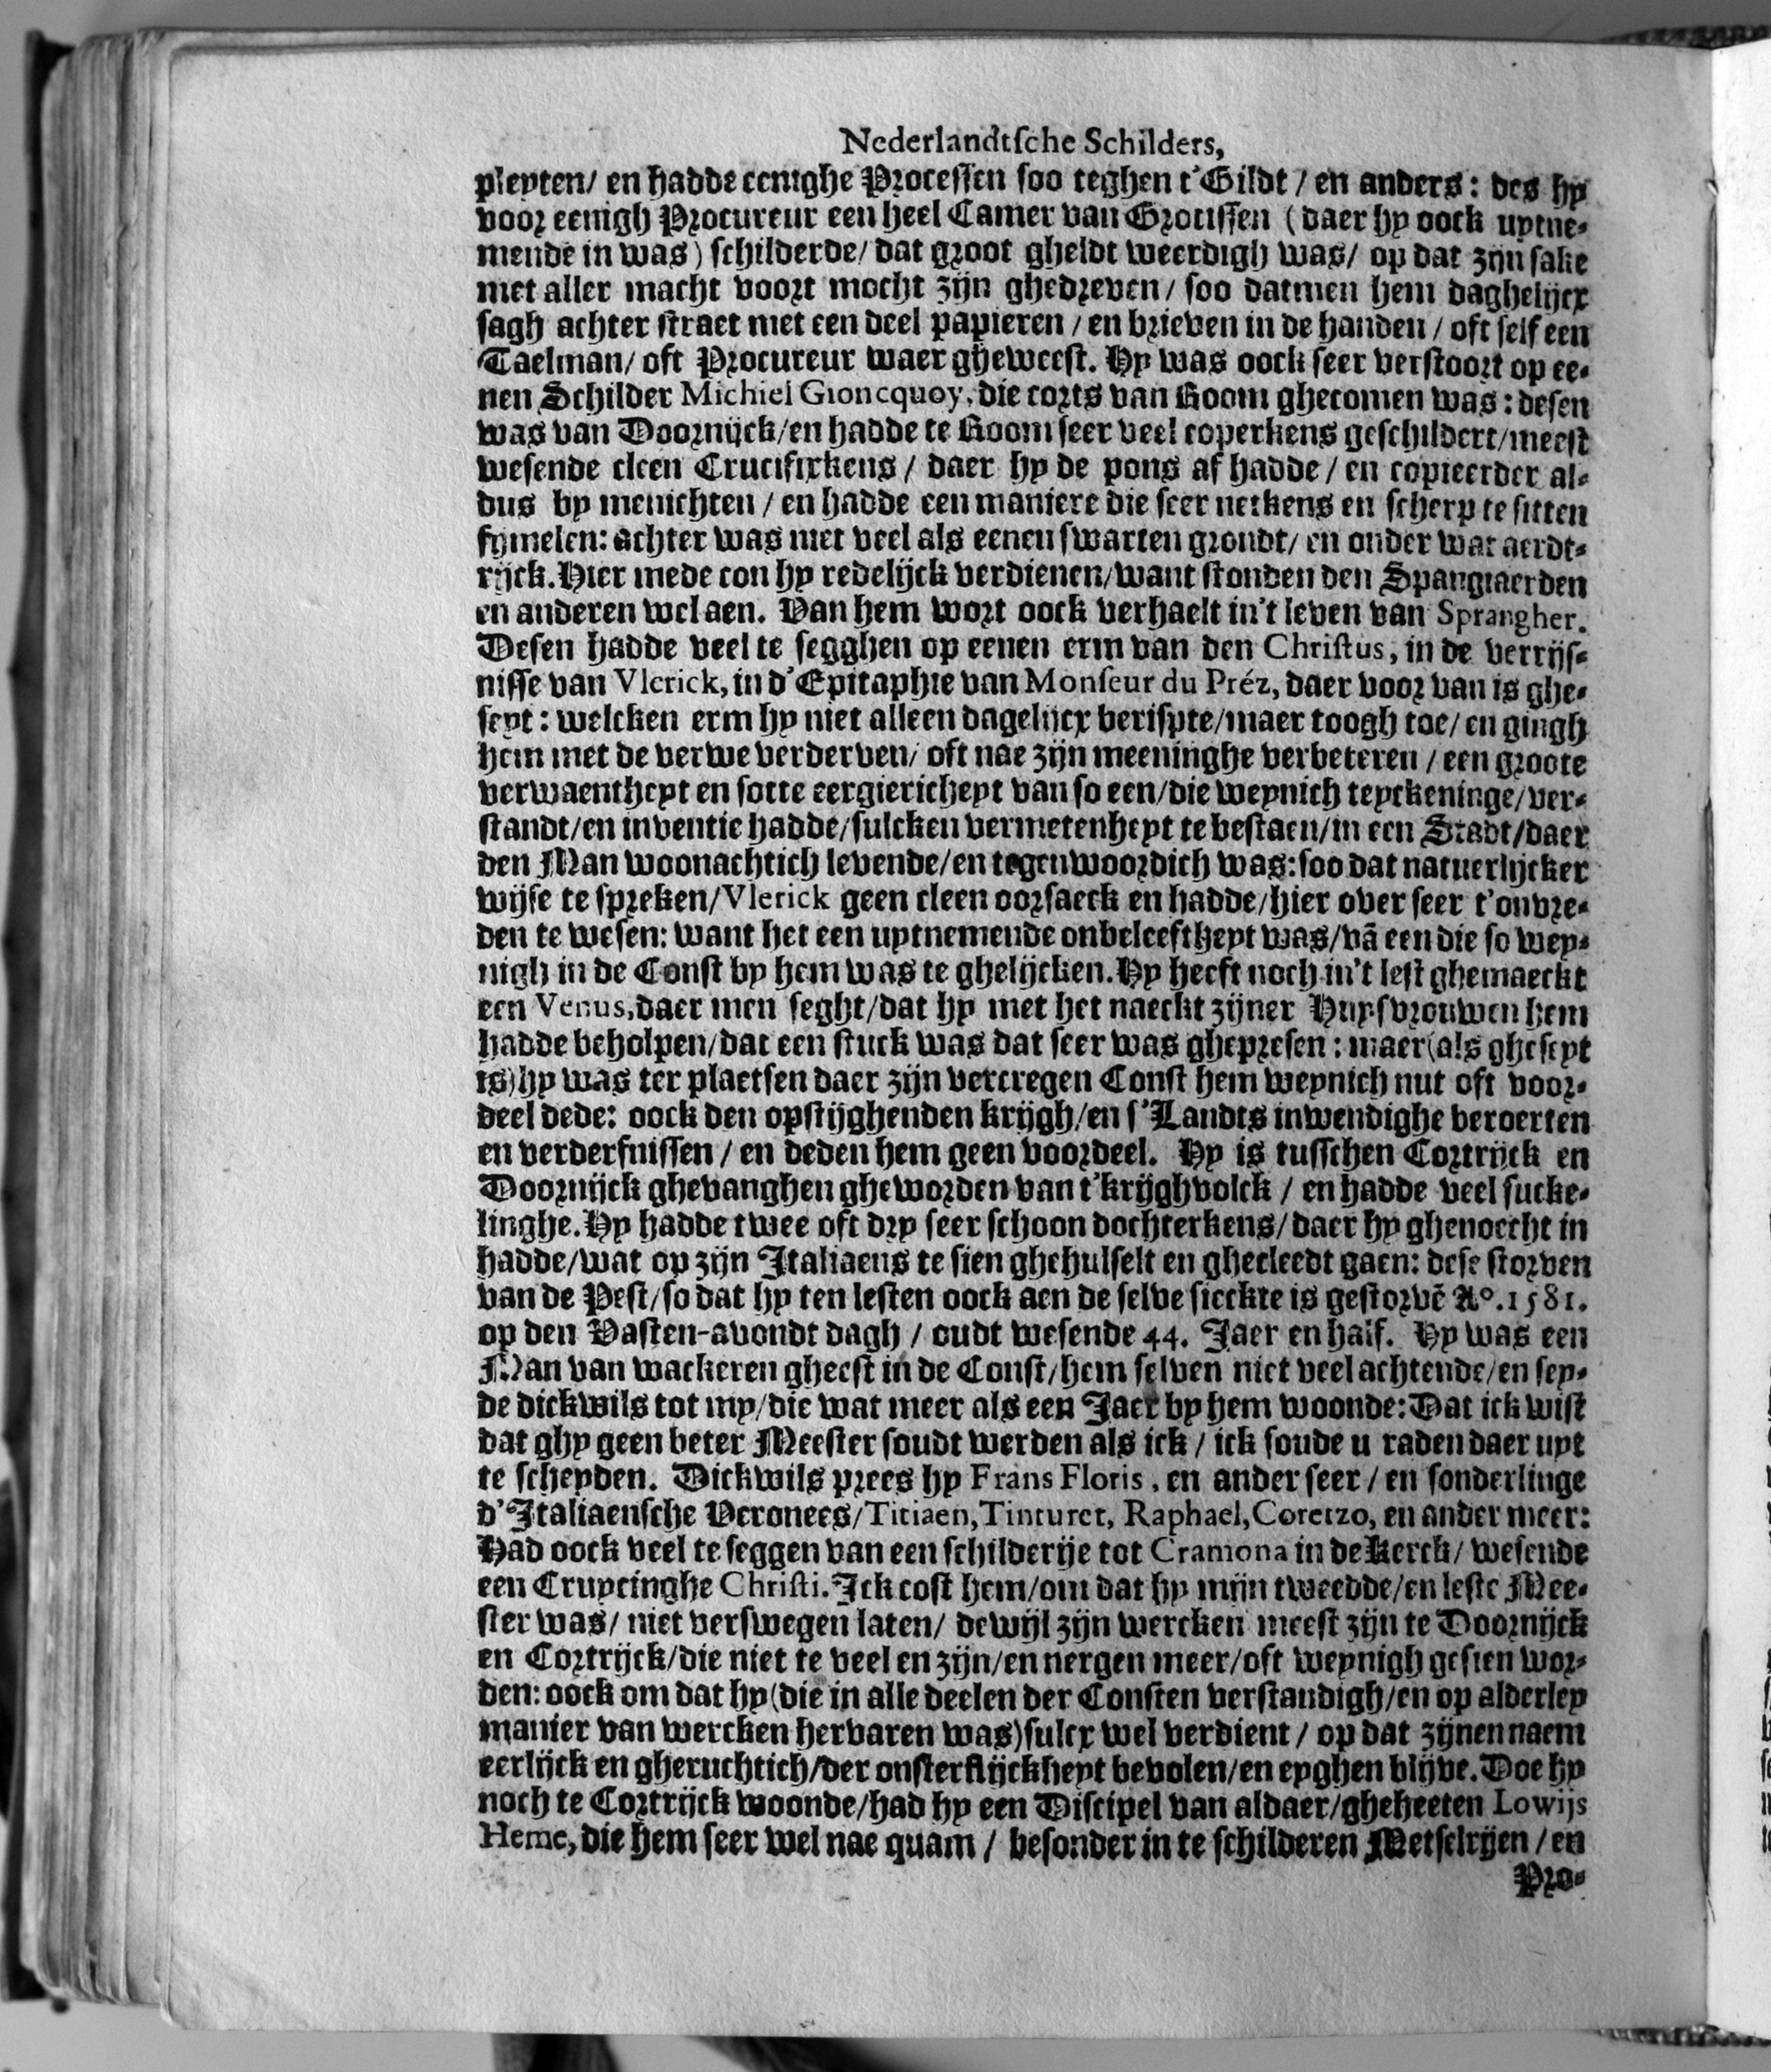 Nederlandtſche Schilders,
pleyten/ en hadde eenighe Proceſſen ſoo teghen t'Gildt / en anders: des hy
voor eenigh Procureur een heel Camer van Grotiſſen (daer hy oock uytne-
mende in was) ſchilderde/ dat groot gheldt weerdigh was/ op dat zijn ſake
met aller macht voort mocht zijn ghedreven/ ſoo datmen hem daghelijcx
ſagh achter ſtraet met een deel papieren / en brieven in de handen / oft ſelf een
Taelman/ oft Procureur waer gheweeſt. Hy was oock ſeer verſtoort op ee-
nen Schilder Michiel Gioncquoy, die corts van Room ghecomen was: deſen
was van Doornijck/en hadde te Room ſeer veel coperkens geſchildert/meeſt
weſende cleen Crucifixkens / daer hy de pons af hadde/ en copieerder al-
dus by menichten / en hadde een maniere die ſeer netkens en ſcherp te ſitten
fijmelen: achter was niet veel als eenen ſwarten grondt/ en onder wat aerdt-
rijck. Hier mede con hy redelijck verdienen/want ſtonden den Spangiaerden
en anderen wel aen. Van hem wort oock verhaelt in't leven van Sprangher.
Deſen hadde veel te ſegghen op eenen erm van den Chriſtus, in de verrijſ-
niſſe van Vlerick, in d'Epitaphie van Monſeur du Préz, daer voor van is ghe-
ſeyt: welcken erm hy niet alleen dagelijcx beriſpte/maer toogh toe/ en gingh
hem met de verwe verderven/ oft nae zijn meeninghe verbeteren / een groote
verwaentheyt en ſotte eergiericheyt van ſo een/die weynich teyckeninge/ver-
ſtandt/en inventie hadde/ſulcken vermetenheyt te beſtaen/in een Stadt/daer
den Man woonachtich levende/en tegenwoordich was: ſoo dat natuerlijcker
wijſe te ſpreken/Vlerick geen cleen oorſaeck en hadde/hier over ſeer t'onvre-
den te weſen: want het een uytnemende onbeleeftheyt was/vã een die ſo wey-
nigh in de Conſt by hem was te ghelijcken. Hy heeft noch in't leſt ghemaeckt
een Venus, daer men ſeght/dat hy met het naeckt zijner Huyſvrouwen hem
hadde beholpen/dat een ſtuck was dat ſeer was ghepreſen: maer (als gheſeyt
is) hy was ter plaetſen daer zijn vercregen Conſt hem weynich nut oft voor-
deel dede: oock den opſtijghenden krijgh/en ſ'Landts inwendighe beroerten
en verderfniſſen / en deden hem geen voordeel. Hy is tuſſchen Cortrijck en
Doornijck ghevanghen gheworden van t'krijghvolck / en hadde veel ſucke-
linghe. Hy hadde twee oft dry ſeer ſchoon dochterkens/daer hy ghenoecht in
hadde/wat op zijn Italiaens te ſien ghehulſelt en ghecleedt gaen: deſe ſtorven
van de Peſt/ſo dat hy ten leſten oock aen de ſelve ſieckte is geſtorvẽ A°. 1581.
op den Vaſten-avondt dagh / oudt weſende 44. Jaer en half. Hy was een
Man van wackeren gheeſt in de Conſt/hem ſelven niet veel achtende/en ſey-
de dickwils tot my/die wat meer als een Jaer by hem woonde: Dat ick wiſt
dat ghy geen beter Meeſter ſoudt werden als ick / ick ſoude u raden daer uyt
te ſcheyden. Dickwils prees hy Frans Floris, en ander ſeer / en ſonderlinge
d'Italiaenſche Veronees/Titiaen, Tinturet, Raphael, Coretzo, en ander meer:
Had oock veel te ſeggen van een ſchilderije tot Cramona in de Kerck/ weſende
een Cruycinghe Chriſti. Ick coſt hem/om dat hy mijn tweedde/en leſte Mee-
ſter was/ niet verſwegen laten/ dewijl zijn wercken meeſt zijn te Doornijck
en Cortrijck/die niet te veel en zijn/en nergen meer/oft weynigh geſien wor-
den: oock om dat hy (die in alle deelen der Conſten verſtandigh/en op alderley
manier van wercken hervaren was) ſulcx wel verdient / op dat zijnen naem
eerlijck en gheruchtich/der onſterflijckheyt bevolen/en eyghen blijve. Doe hy
noch te Cortrijck woonde/had hy een Diſcipel van aldaer/gheheeten Lowijs
Heme, die hem ſeer wel nae quam / beſonder in te ſchilderen Metſelrijen / en
Pro-